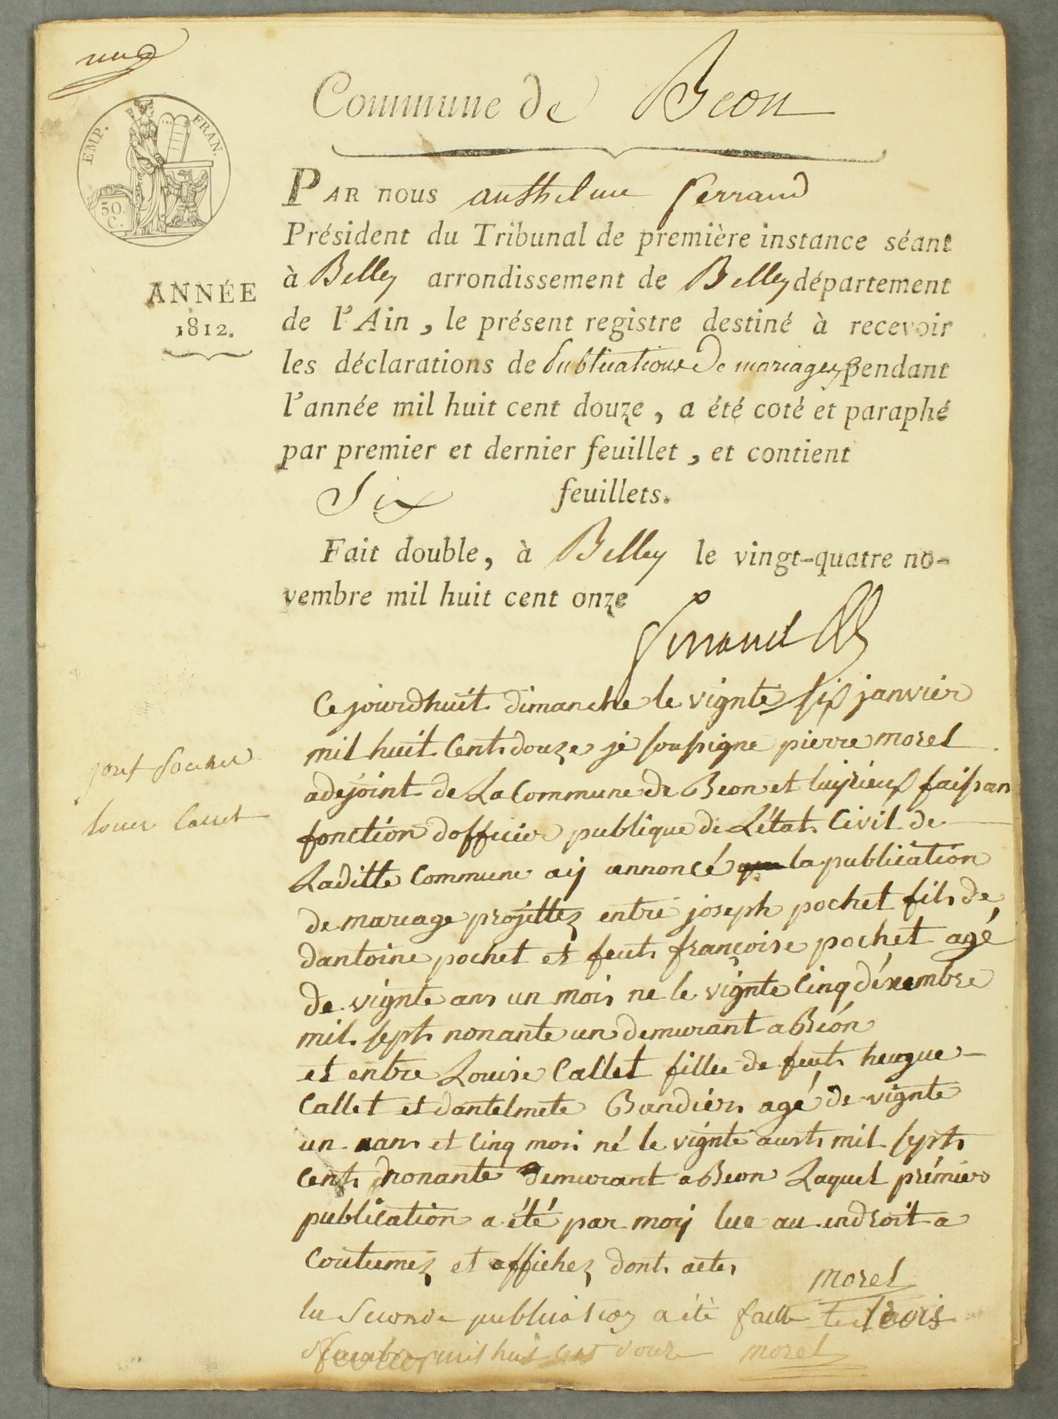 une
EMP. FRAN.
50 C.
Commune de Beon
PAR nous anthelme ferrand
Président du Tribunal de première instance séant
à Belley arrondissement de Belley département
de l'Ain, le présent registre destiné à recevoir
les déclarations de publications de mariages pendant
l'année mil huit cent douze, a été coté et paraphé
par premier et dernier feuillet, et contient
Six feuillets.
Fait double, à Belley le vingt-quatre no-
vembre mil huit cent onze
ferrand
ANNÉE
1812.
Ce jourdhuit dimanche le vignte six janvier
mil huit Cent douze je soussigne pierre morel
adejoint de La Commune de Beon et luyrieux faisan
fonction dofficier publique de Létat Civil de
Laditte Commune aij annoncé la publication
de mariage projettez entre joseph pochet fils de
dantoine pochet et feut françoise pochet agé
de vignte ans un mois ne le vignte Cinq déxembre
mil sept nonante un demurant a Béon
et entre Louise Callet fillee de feut heugue
Callet et dantelmete Bandiér agé de vignte
un ans et Cinq mois né le vignte aust mil sept
Cent nonante demurant a Beon Laquel prémier
publication a été par moij lue au indroit a
Coutumez et affichez dont acte
morel
la Seconde publication a été faitte le trois
fevrier mil huit cent douze morel